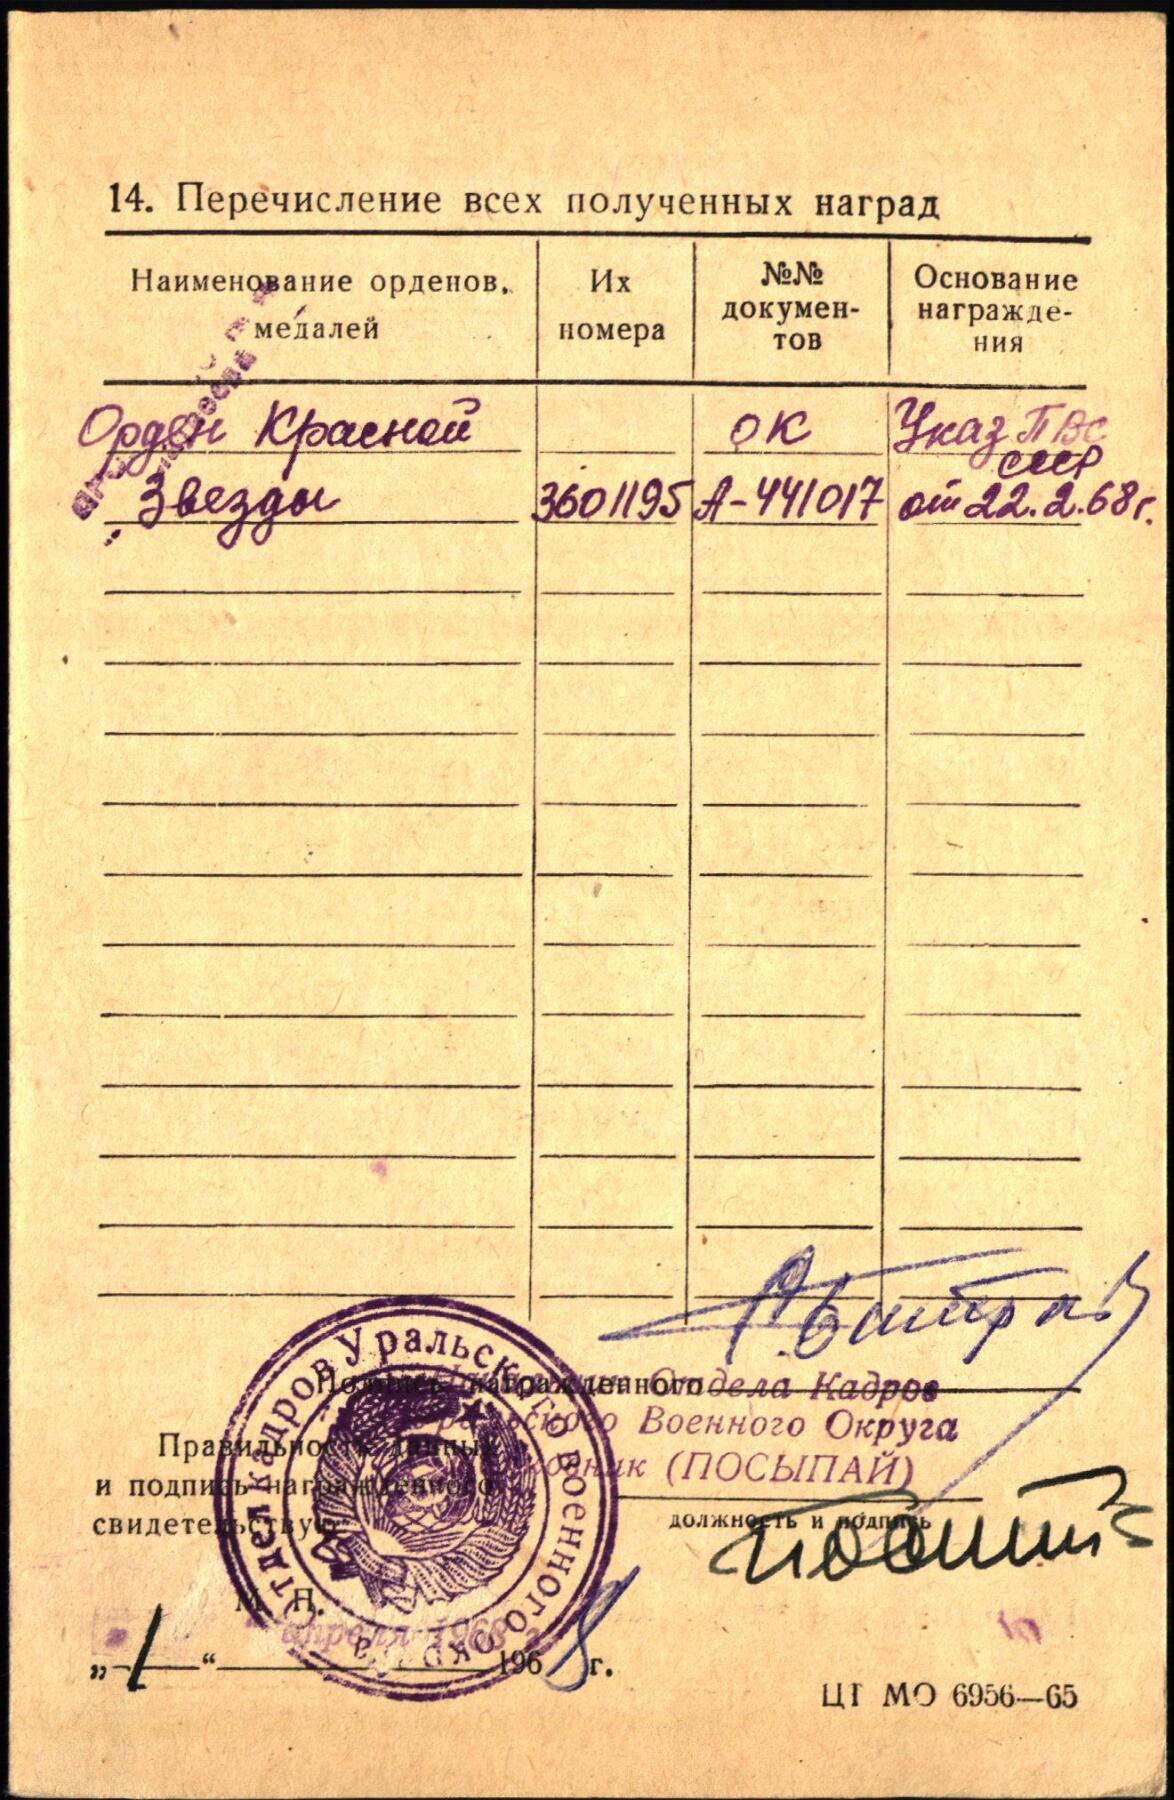 14. Перечисление всех полученных наград
Наименование орденов, медалей
Их номера
№№ докумен-
тов
Основание
награжде-
ния
Орден Красной
Звезды
3601195
ОК
А-441017
Указ ПВС
СССР
от 22.2.68г.
Подпись награжденного
Отдела Кадров
Военного Округа
(ПОСЫПАЙ)
Правильность данных
и подпись награжденного
свидетельствую
должность и подпись
Отдел кадров Уральского военного округа
М. П.
апреля 1968 г.
„1“ 1968 г.
ЦТ МО 6956—65